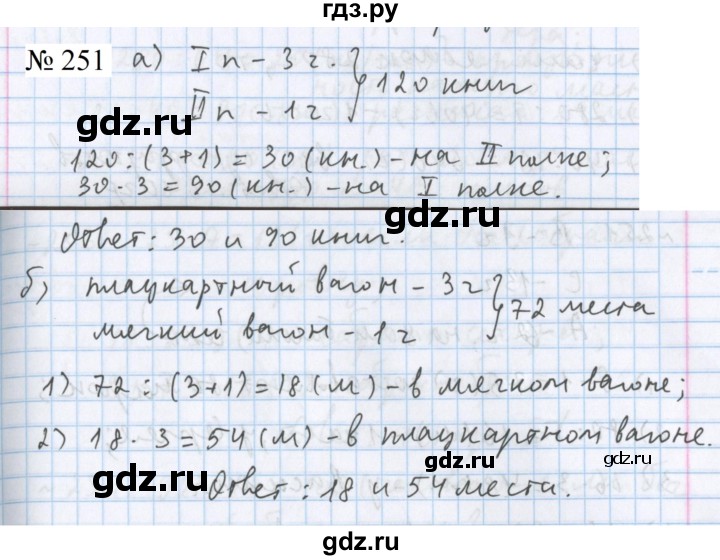 гдз.ру
№ 251 а) I п – 3 ч.
II п – 1 ч
} 120 книг
gdz.ru
gdz.ru
120 : (3+1) = 30 (кн.) – на II полке;
30 · 3 = 90 (кн.) – на I полке.
gdz.ru
Ответ: 30 и 90 книг.
б) плацкартный вагон – 3 ч
мягкий вагон – 1 ч
} 72 места
gdz.ru
1) 72 : (3+1) = 18 (м) – в мягком вагоне;
2) 18 · 3 = 54 (м) – в плацкартном вагоне.
gdz.ru
gdz.ru
Ответ: 18 и 54 места.
gdz.ru